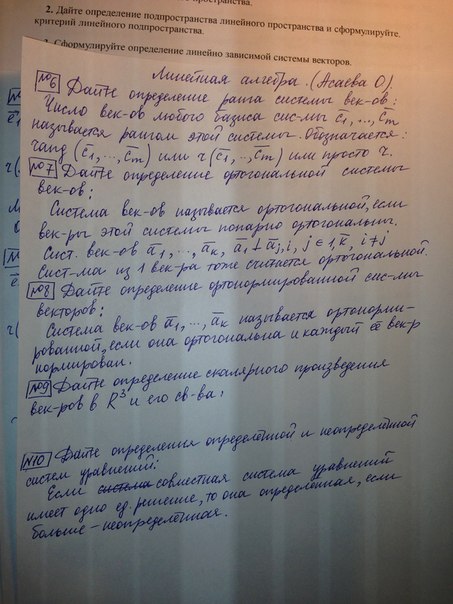 пространства.
2. Дайте определение подпространства линейного пространства и сформулируйте
критерий линейного подпространства.
3. Сформулируйте определение линейно зависимой системы векторов.
Линейная алгебра. (Асаева О)
№6 Дайте определение ранга системы век-ов:
Число век-ов любого базиса сис-мы c̅1,..., c̅m
называется рангом этой системы. Обозначается:
rang (c̅1,..., c̅m) или r (c̅1,.., c̅m) или просто r.
№7 Дайте определение ортогональной системы
век-ов:
Система век-ов называется ортогональной, если
век-ры этой системы попарно ортогональны.
Сист. век-ов a̅1,..., a̅k, a̅i ⊥ a̅j, i, j ∈ 1,k, i ≠ j
Сист-ма из 1 век-ра тоже считается ортогональной.
№8 Дайте определение ортонормированной сис-мы
векторов:
Система век-ов a̅1,..., a̅k называется ортонорми-
рованной, если она ортогональна и каждый век-р
нормирован.
№9 Дайте определение скалярного произведения
век-ров в R³ и его св-ва:
№10 Дайте определения определённой и неопределённой
систем уравнений:
Если система совместная система уравнений
имеет одно ед. решение, то она определённая, если
больше – неопределённая.